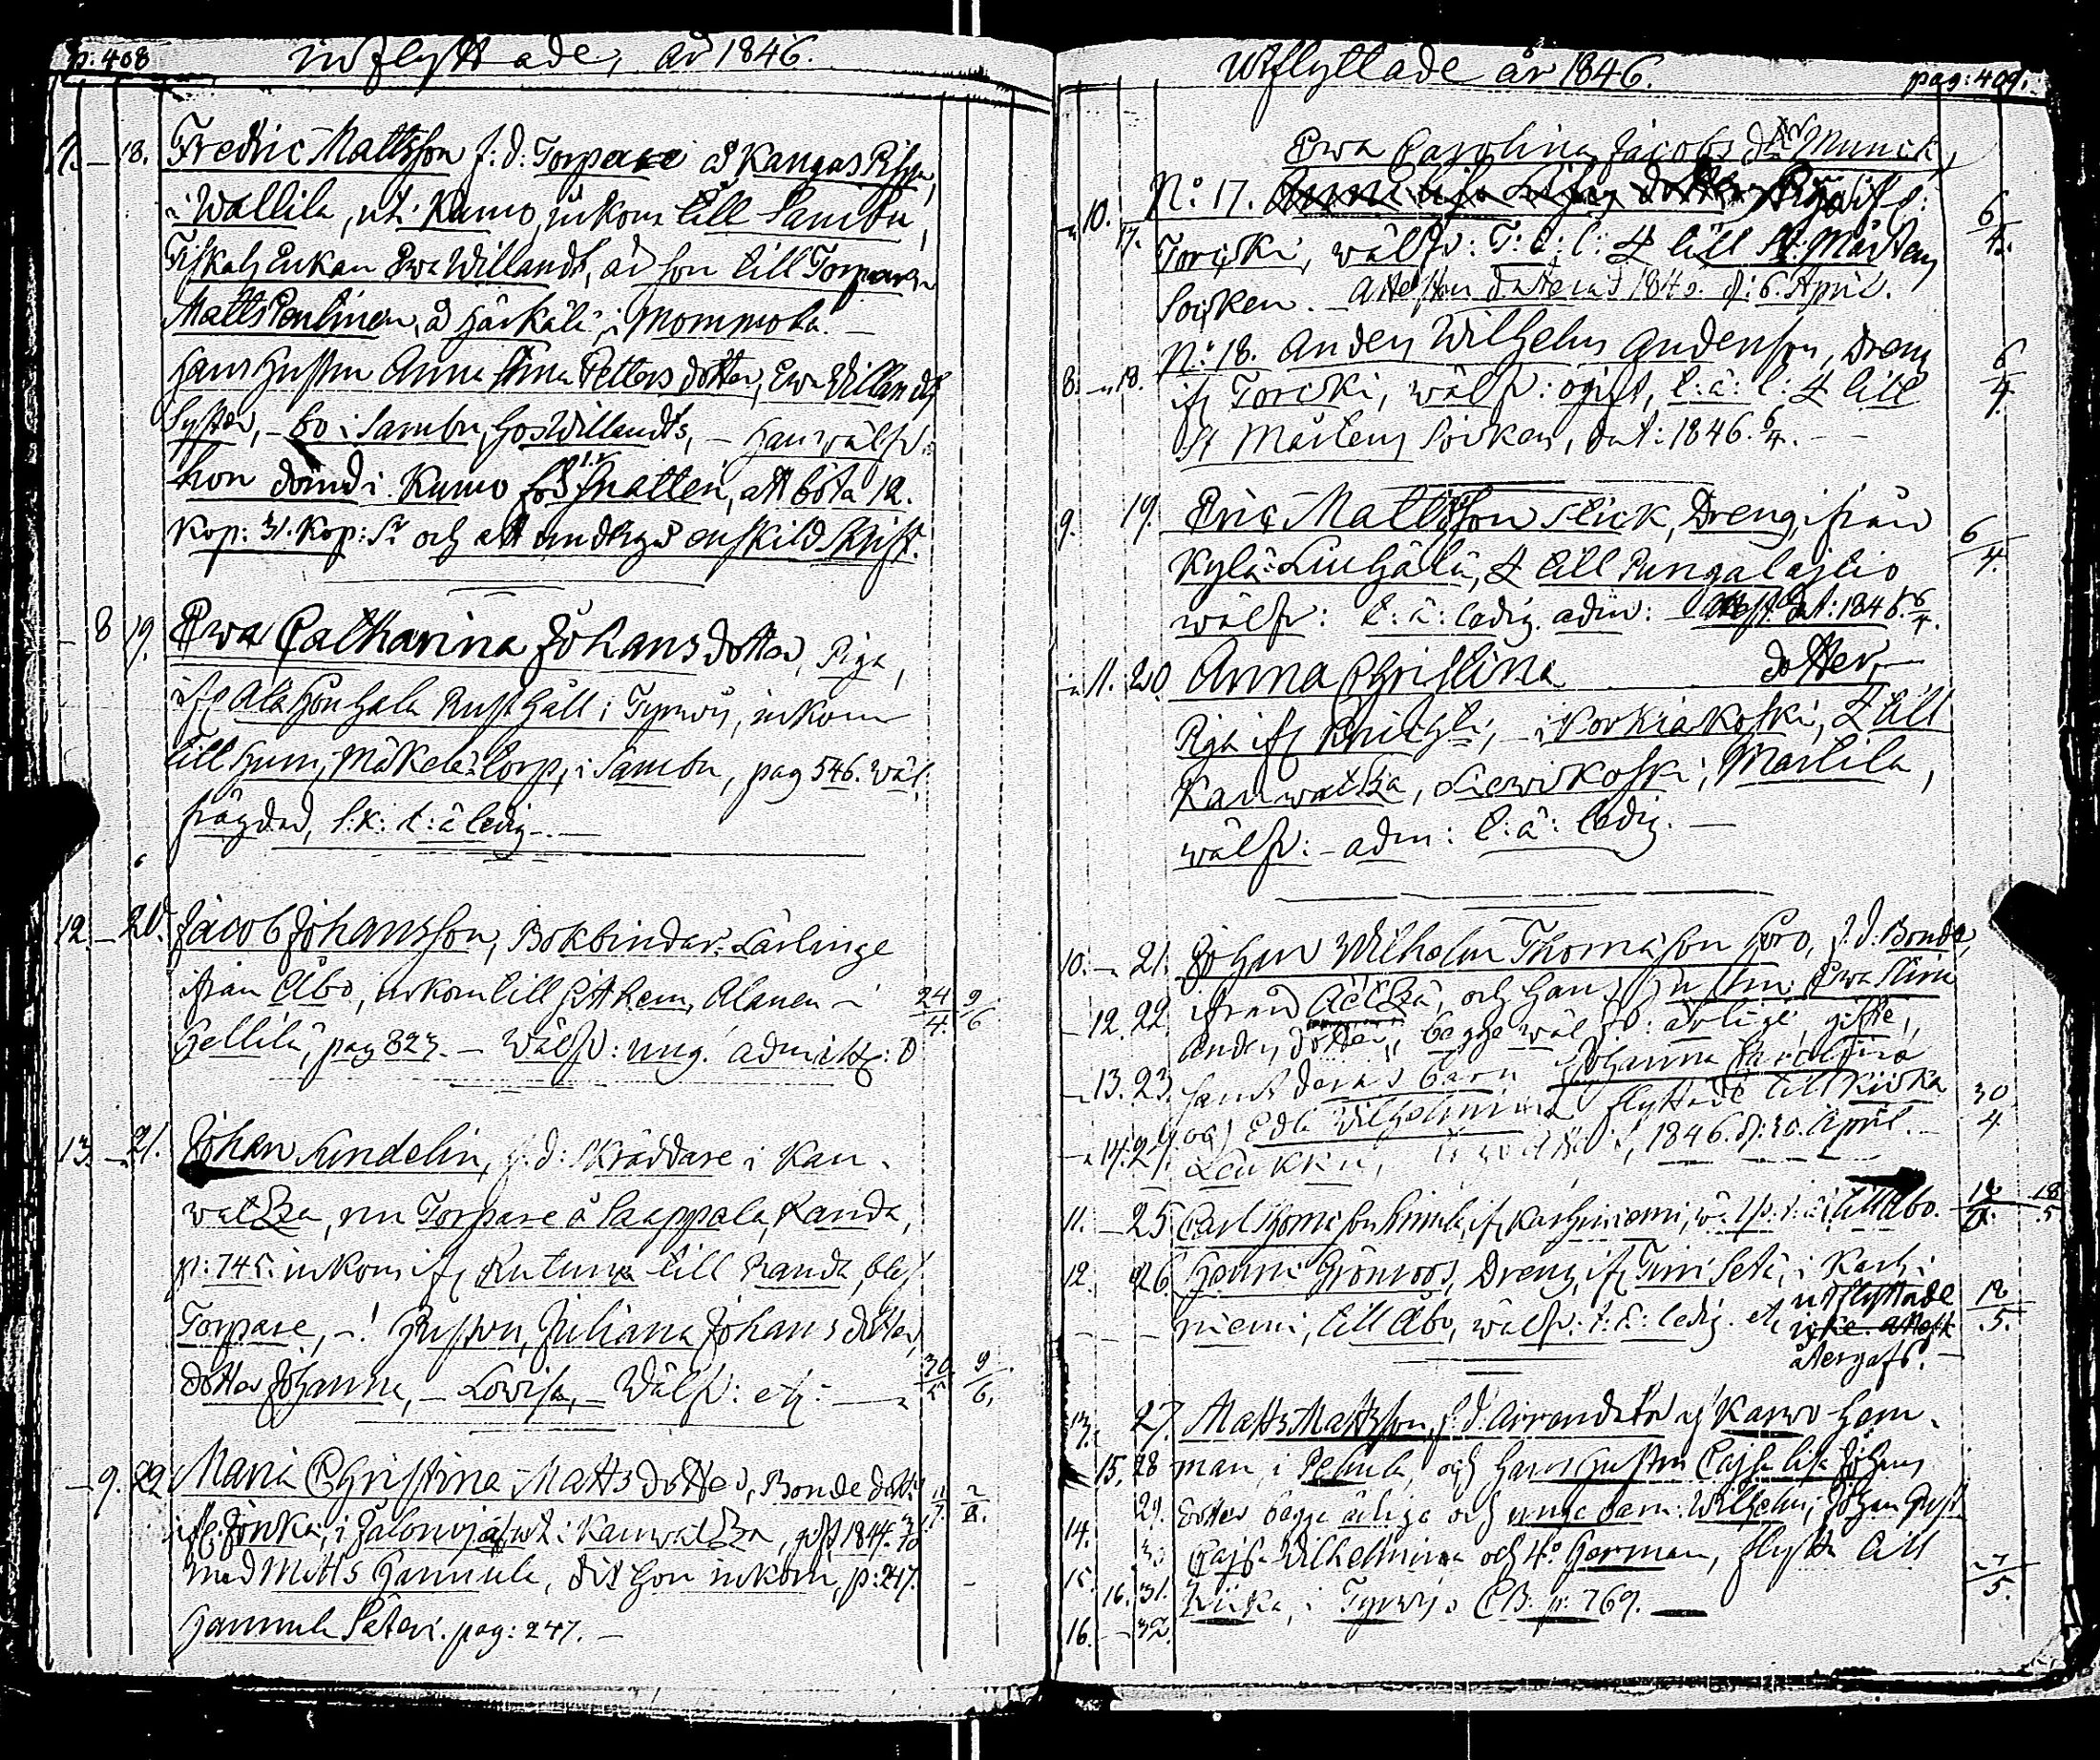 p: 408 inflyttade, år 1846.
7. — 18. Fredric Mattsson f: d: Torpare å Kangas Pihja,
i Wallila, uti Kumo, inkom till Sambu,
Fiskals Enkan Ewa Willandt, är son till Torparen
Matts Pentinen, å Härkälä, i Mommola. —
Hans Hustru Anna Stina Petters dotter, Ewa Willandts
Syster, — bo i Sambu, hos Willandts, — han wälfr:
hon dömd i Kumo för Snatteri, att böta 12.
Kop: 31. Kop: Sr och att undergå enskild Skrift.
— 8 19. Ewa Catharina Johans dotter, Piga,
ifr Ala Hou hala Rusthåll i Tyrwis, inkom
till Humi, Mäkelä Torp, i Sambu, pag 546. wäl
frägdad, l: k: t: ä ledig —. —
12. — 20. Jacob Johansson, Bokbindar-Lärlinge
ifrån Åbo, inkom till sitt hem, Alanen — i
Hellilä, pag 827. — Wälfr: ung. admitt: 24/4. 9/6
13. — 21. Johan Sundelin, f: d: Skräddare i Kau-
watza, nu Torpare å Saappala, Randa,
p: 745. inkom ifr Kutuna till Randa, blef
Torpare, —! Hustru, Juliana Johans dotter,
dotter Johanna, — Lovisa, — Wälfr: etc: — 30/5 9/6.
— 9. 22 Maria Christina Matts dotter, Bonde dott:
ifr Jonka, i Jalonoja, ut i Kauwatza, gift 1844.
med Matts Hannula, dit hon inkom, p: 247.
Hannula Säteri. pag: 247. —
Utflyttade år 1846. pag: 409.
Ewa Carolina Jacobs dr Munck,
— 10. 17. No: 17. Piga ifr: 6/4.
Torciski, wälfr: T: ä: l: till St: Mårtens
Socken. — Attesten daterad 1846. d: 6. April.
8. — 18. No: 18. Anders Wilhelm Andersson, Dreng 6/4.
ifr Torciski, wälfr: ogift, t: ä: l: till
St Mårtens Socken, dat: 1846. 6/4. — —
9. 19. Eric Mattsson Slick, Dreng, ifrån 6/4.
Kylä-Liuhala, till Pungalaitio
wälfr: t: ä: ledig. adm: — Attest dat: 1846. 6/4.
— 11. 20. Anna Christina dotter, —
Piga ifr Knichti, — i Korkiakoski, till
Kauwatza, Liewikoski, Marttila,
wälfr: — adm: t: ä: ledig. —
10. — 21. Johan Wilhelm Thomasson Horo, f: d: Bonde,
— 12. 22. ifrån Äetzä, och hans Hustru Ewa Stina
Anders dotter, begge wälfr: ärlige, gifte,
— 13. 23. samt deras barn Johanna Carolina
— 14. 24. och Edla Wilhelmina flyttade till Kiika 30/4
Leukku, 1846. d: 30. April. —
11. — 25 Carl Thomasson ifr Karhiniemi, wälfr: t: ä: l: till Åbo. 18/5
12. 26. Henric Grönroos, Dreng, ifr Turri Setä, i Karhi-
— — — niemi, till Åbo, wälfr: t: ä: ledig. etc utflyttade 18/5.
icke. attest
återgafs. —
13. 27. Matts Mattsson, f: d: Arrendator af Karwo Hem-
15, 28 man, i Pehula, och hans Hustru Cajsa Lisa Johans
14. 29. dotter begge ärliga och unga barn: Wilhelm, Johan Gust
15. 30 Cajsa Wilhelmina och 4o Herman, flytta till
16. 31. Kiika, i Tyrwis CB: p: 769. — 27/5
16. — 32.